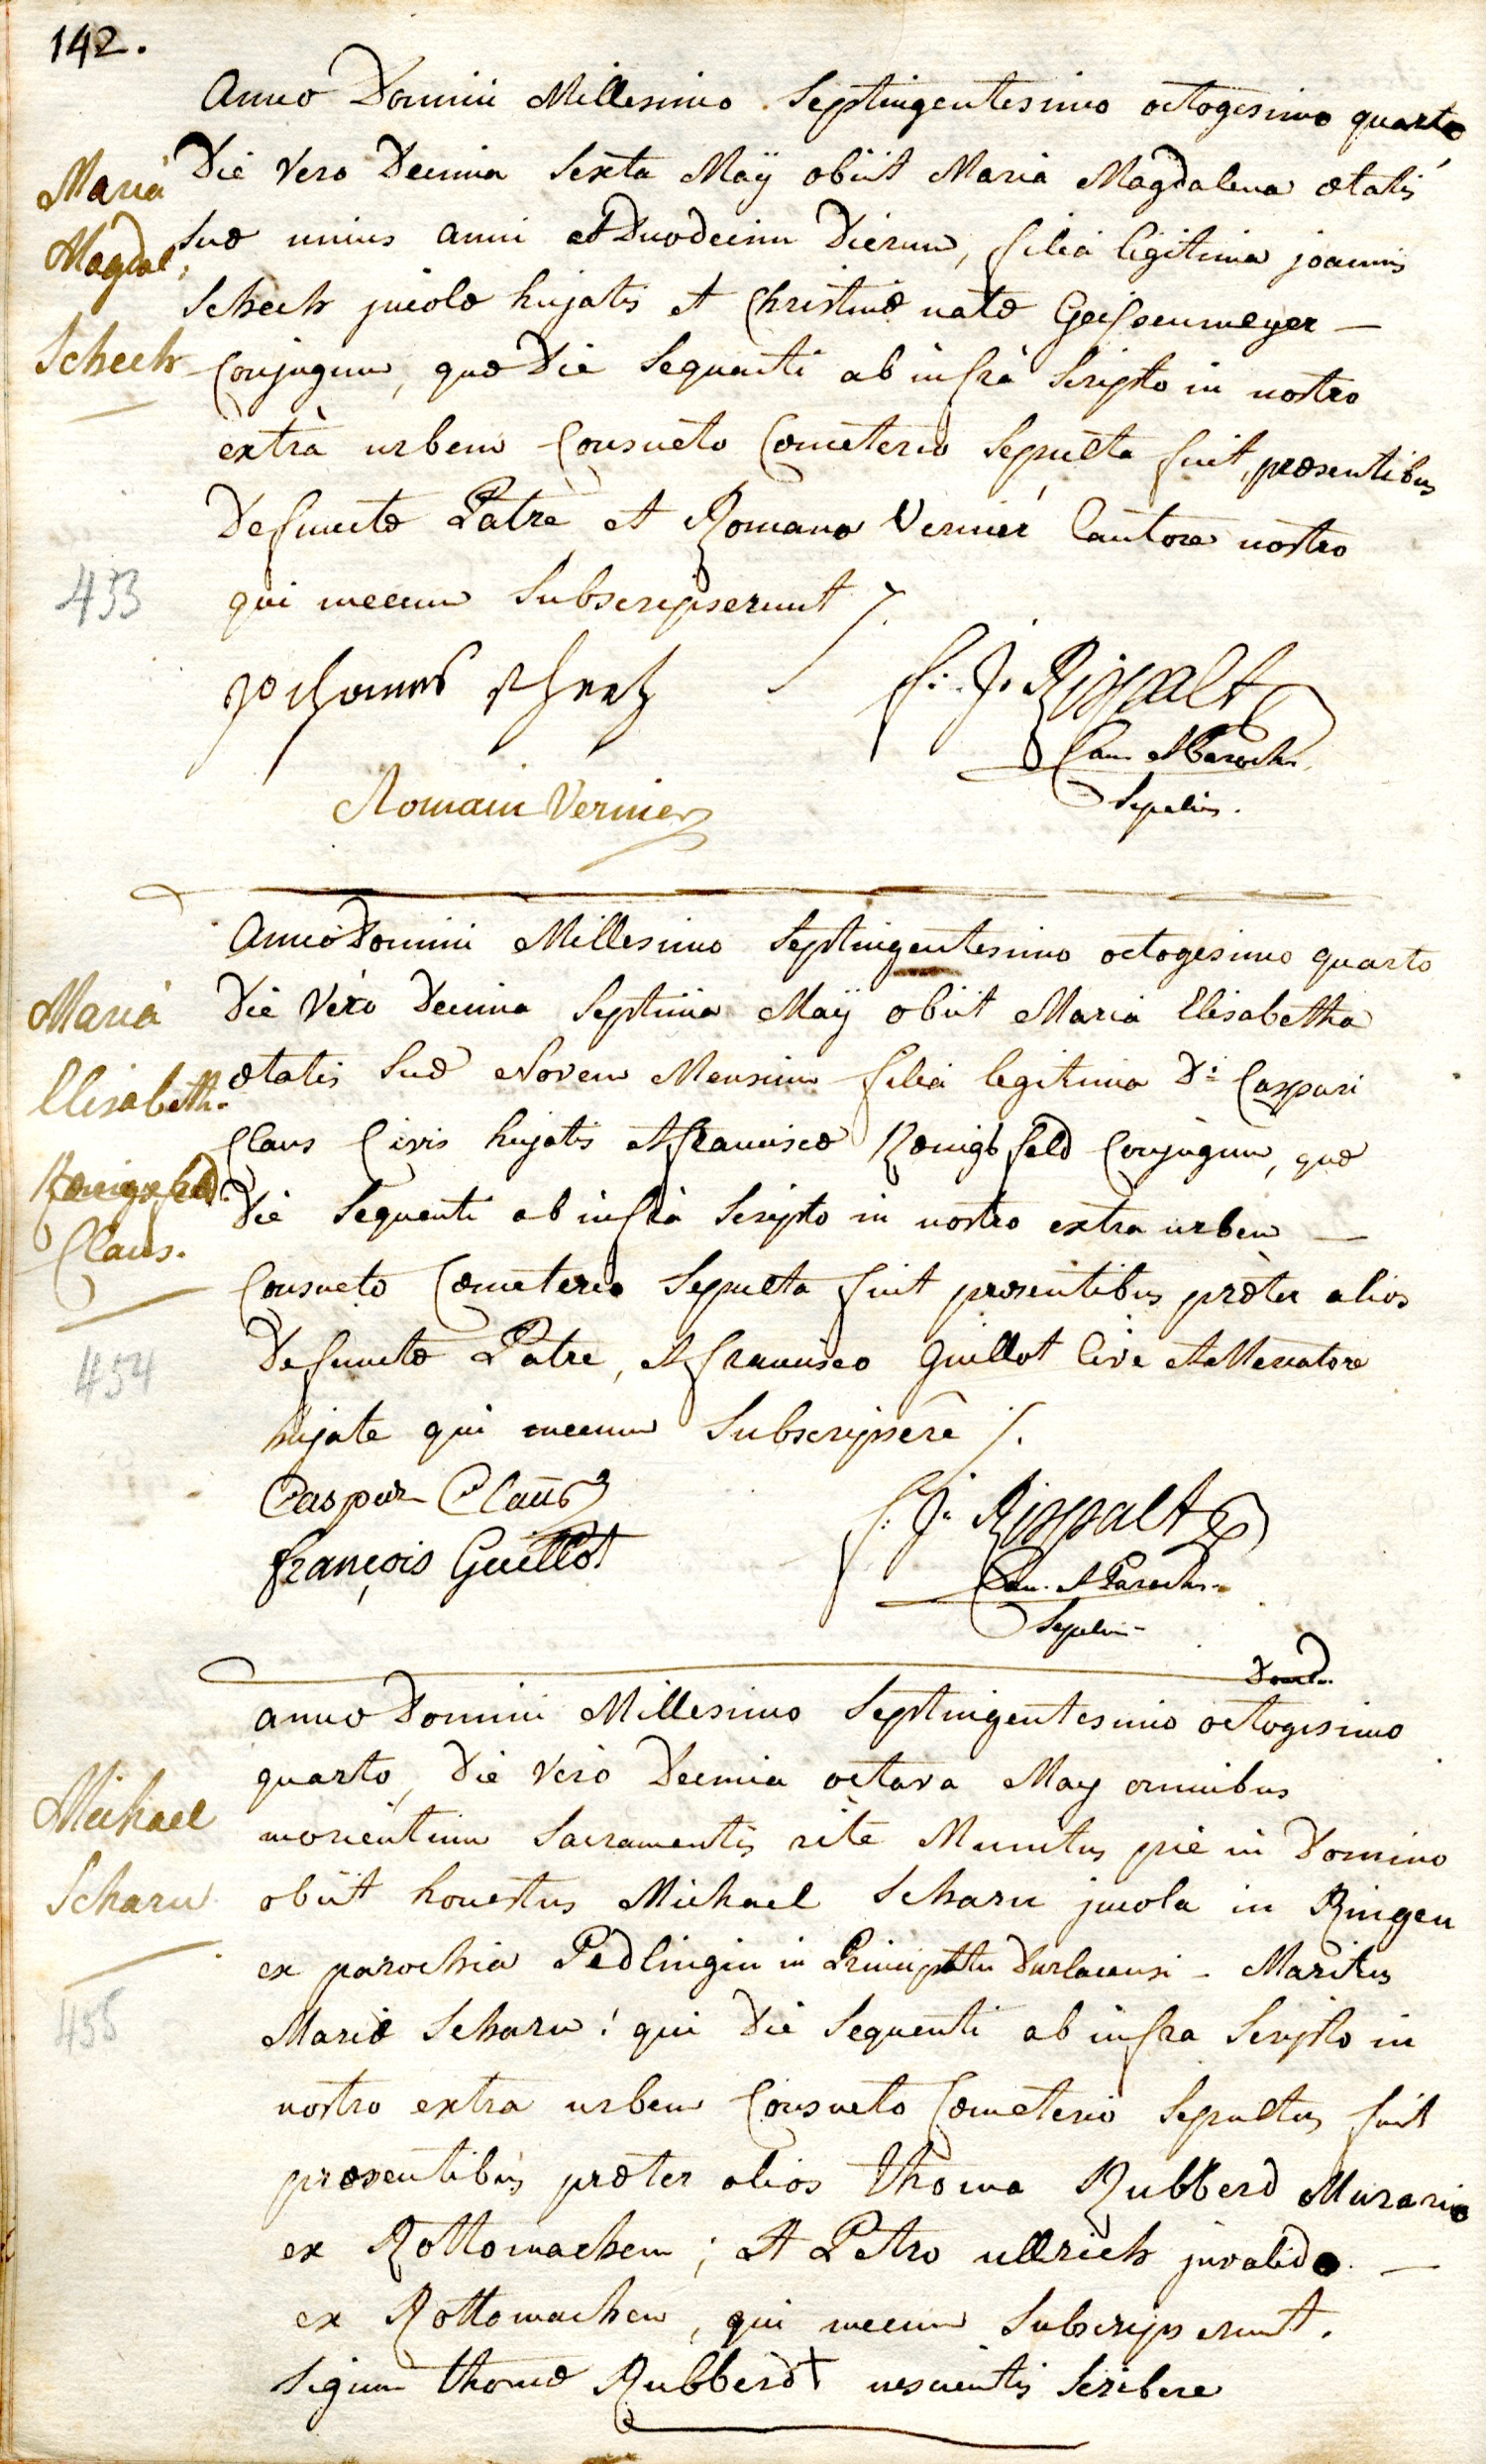 142.
Anno Domini Millesimo Septingentesimo octogesimo quarto
Die Vero Decima Sexta Maÿ obiit Maria Magdalena ætatis
suæ unius anni et Duodecim Dierum, filia legitima joannis
Schech jncolæ hujatis et Christinæ natæ Geissenmeyer —
Conjugum, quæ Die Sequenti ab infrà Scripto in nostro
extrà urbem Consueto Cœmeterio Sepulta fuit, præsentibus
Defunctæ Patre et Romano Vernier Cantore nostro
qui mecum Subscripserunt /.
Maria
Magdal.
Schech
433
Johannes Schech
F. J. Rippalt
Can. et Parochus
Sepeliens.
Romain Vernier
Anno Domini Millesimo Septingentesimo octogesimo quarto
Die Verò Decima Septima Maÿ obiit Maria Elisabetha
ætatis Suæ Novem Mensium filia legitima D: Caspari
Claus Civis hujatis et franciscæ Kœnigsfeld Conjugum, quæ
Die Sequenti ab infrà Scripto in nostro extra urbem —
Consueto Cœmeterio Sepulta fuit præsentibus præter alios
Defunctæ Patre, et francisco Guillot Cive et Mercatore
hujate qui mecum Subscripsere /.
Maria
Elisabeth.
Kœnigsfeld
Claus.
454
Caspar Claus
françois Guillot
F. J. Rippalt
Can. et Parochus
Sepeliens
anno Domini Millesimo Septingentesimo octogesimo
quarto, Die Verò Decima octava May omnibus
morientium Sacramentis ritè Munitus piè in Domino
obiit honestus Michael Scharu jncola in Ringen
ex parochia Pedlingin in Principatu Durlacensi - Maritus
Mariæ Scharu: qui Die Sequenti ab infra Scripto in
nostro extra urbem Consueto Cœmeterio Sepultus fuit
præsentibus præter alios Thoma Rubberd Murario
ex Rottomachem; et Petro ullrich jnvalido. —
ex Rottomachen, qui mecum Subscripserunt.
Signum Thomæ Rubberd + nescientis Scribere
Michael
Scharu
455